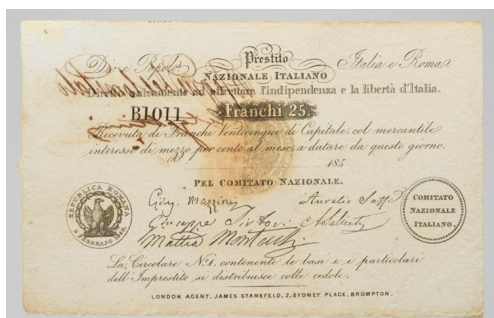 Dio e Popolo Prestito Italia e Roma.
NAZIONALE ITALIANO
Diretto unicamente ad affrettare l'indipendenza e la libertà d'Italia.
B1011 Franchi 25.
Ricevuta di Franchi Venticinque di Capitale col mercantile
interesse di mezzo per cento al mese a datare da questo giorno.
185
PEL COMITATO NAZIONALE.
Gius. Mazzini Aurelio Saffi
Giuseppe Sirtori
Mattia Montecchi
REPUBLICA ROMANA
9 FEBBRAJO 1849
COMITATO
NAZIONALE
ITALIANO.
La Circolare No. 1. contenente le basi e i particolari
dell'Imprestito si distribuisce colle cedole.
LONDON AGENT, JAMES STANSFELD, 2, SYDNEY PLACE, BROMPTON.